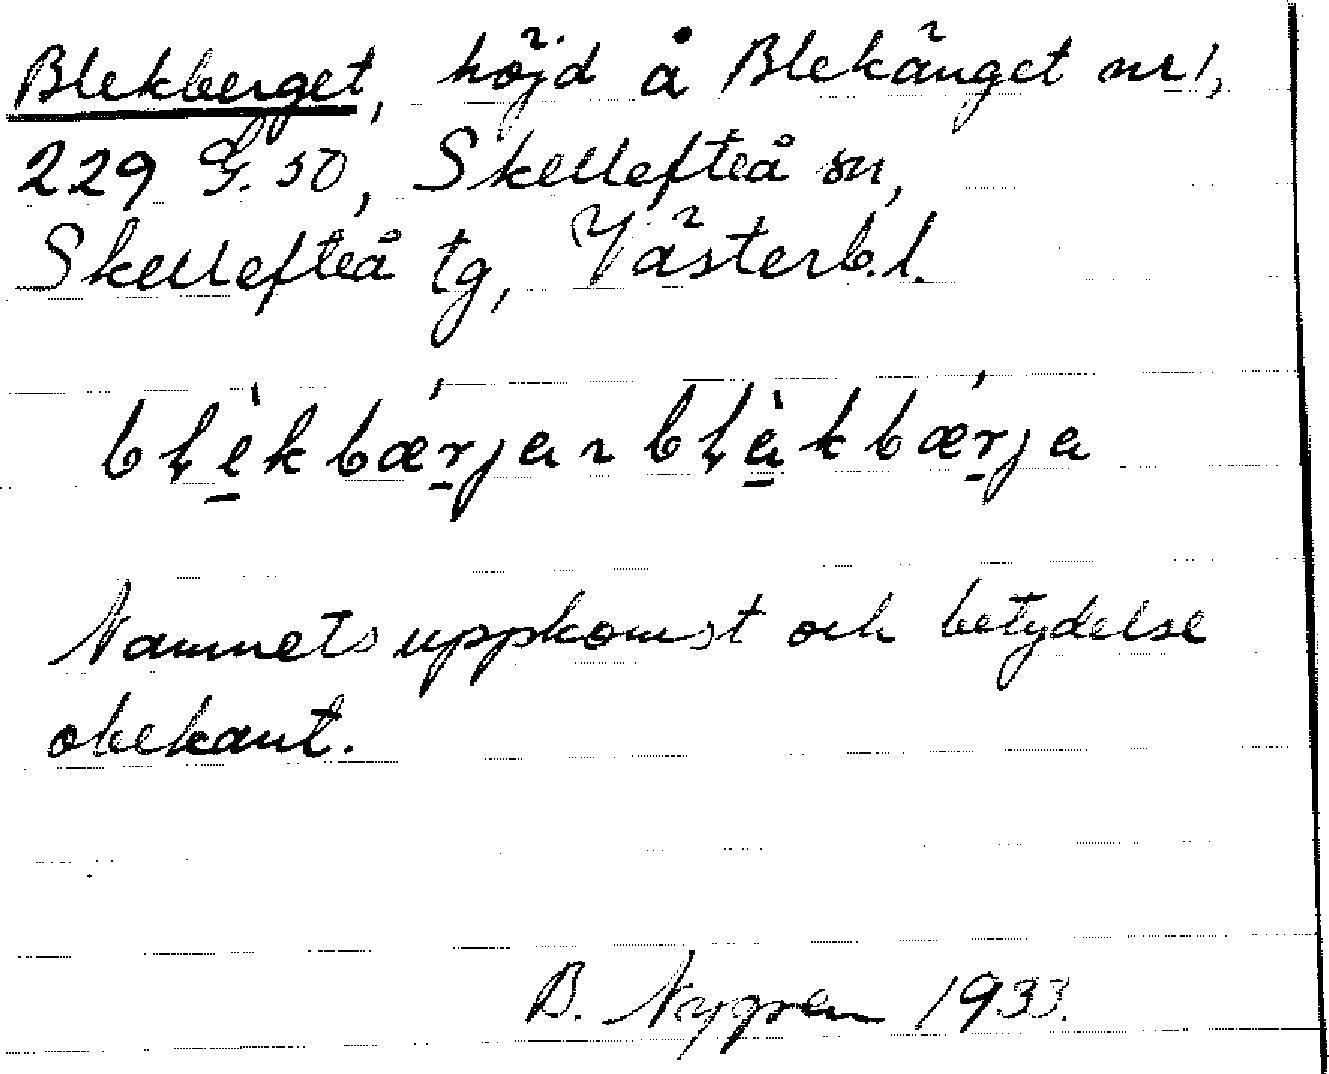 Blekberget, höjd å Blekänget nr 1,
229 G. 50, Skellefteå sn,
Skellefteå tg, Västerb. l.
bḷè̱kbǽ̱rja ~ bḷà̱kbǽ̱rja
Namnets uppkomst och betydelse
obekant.
B. Nygren 1933.